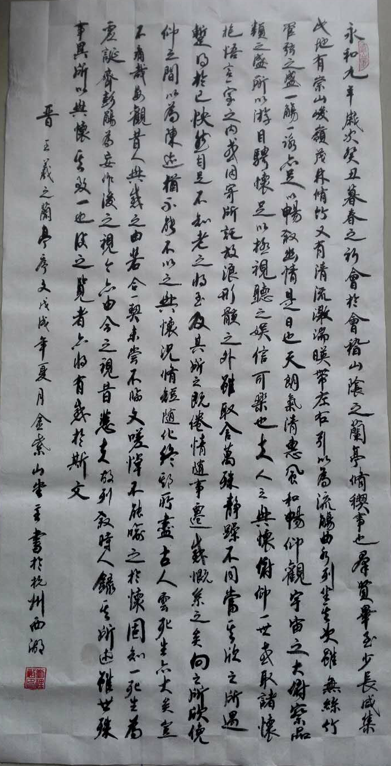 永和九年歲次癸丑暮春之初會於會稽山陰之蘭亭脩禊事也羣賢畢至少長咸集
此地有崇山峻嶺茂林脩竹又有清流激湍暎帶左右引以為流觴曲水列坐其次雖無絲竹
管弦之盛一觴一詠亦足以暢敘幽情是日也天朗氣清惠風和暢仰觀宇宙之大俯察品
類之盛所以游目騁懷足以極視聽之娛信可樂也夫人之俯仰一世或取諸懷
抱悟言一室之內或因寄所託放浪形骸之外雖取舍萬殊靜躁不同當其欣之所遇
暫得於己快然自足不知老之將至及其所之既倦情隨事遷感慨係之矣向之所欣俛
仰之間以為陳迹猶不能不以之興懷況脩短隨化終期所盡古人雲死生亦大矣豈
不痛哉每觀昔人興感之由若合一契未嘗不臨文嗟悼不能喻之於懷固知一死生為
虛誕齊彭殤為妄作後之視今亦由今之視昔悲夫故列敘時人錄其所述雖世殊
事異所以興懷其致一也後之覽者亦將有感於斯文
晉王羲之蘭亭序文戊戌年夏月金紫山堂主書於杭州西湖